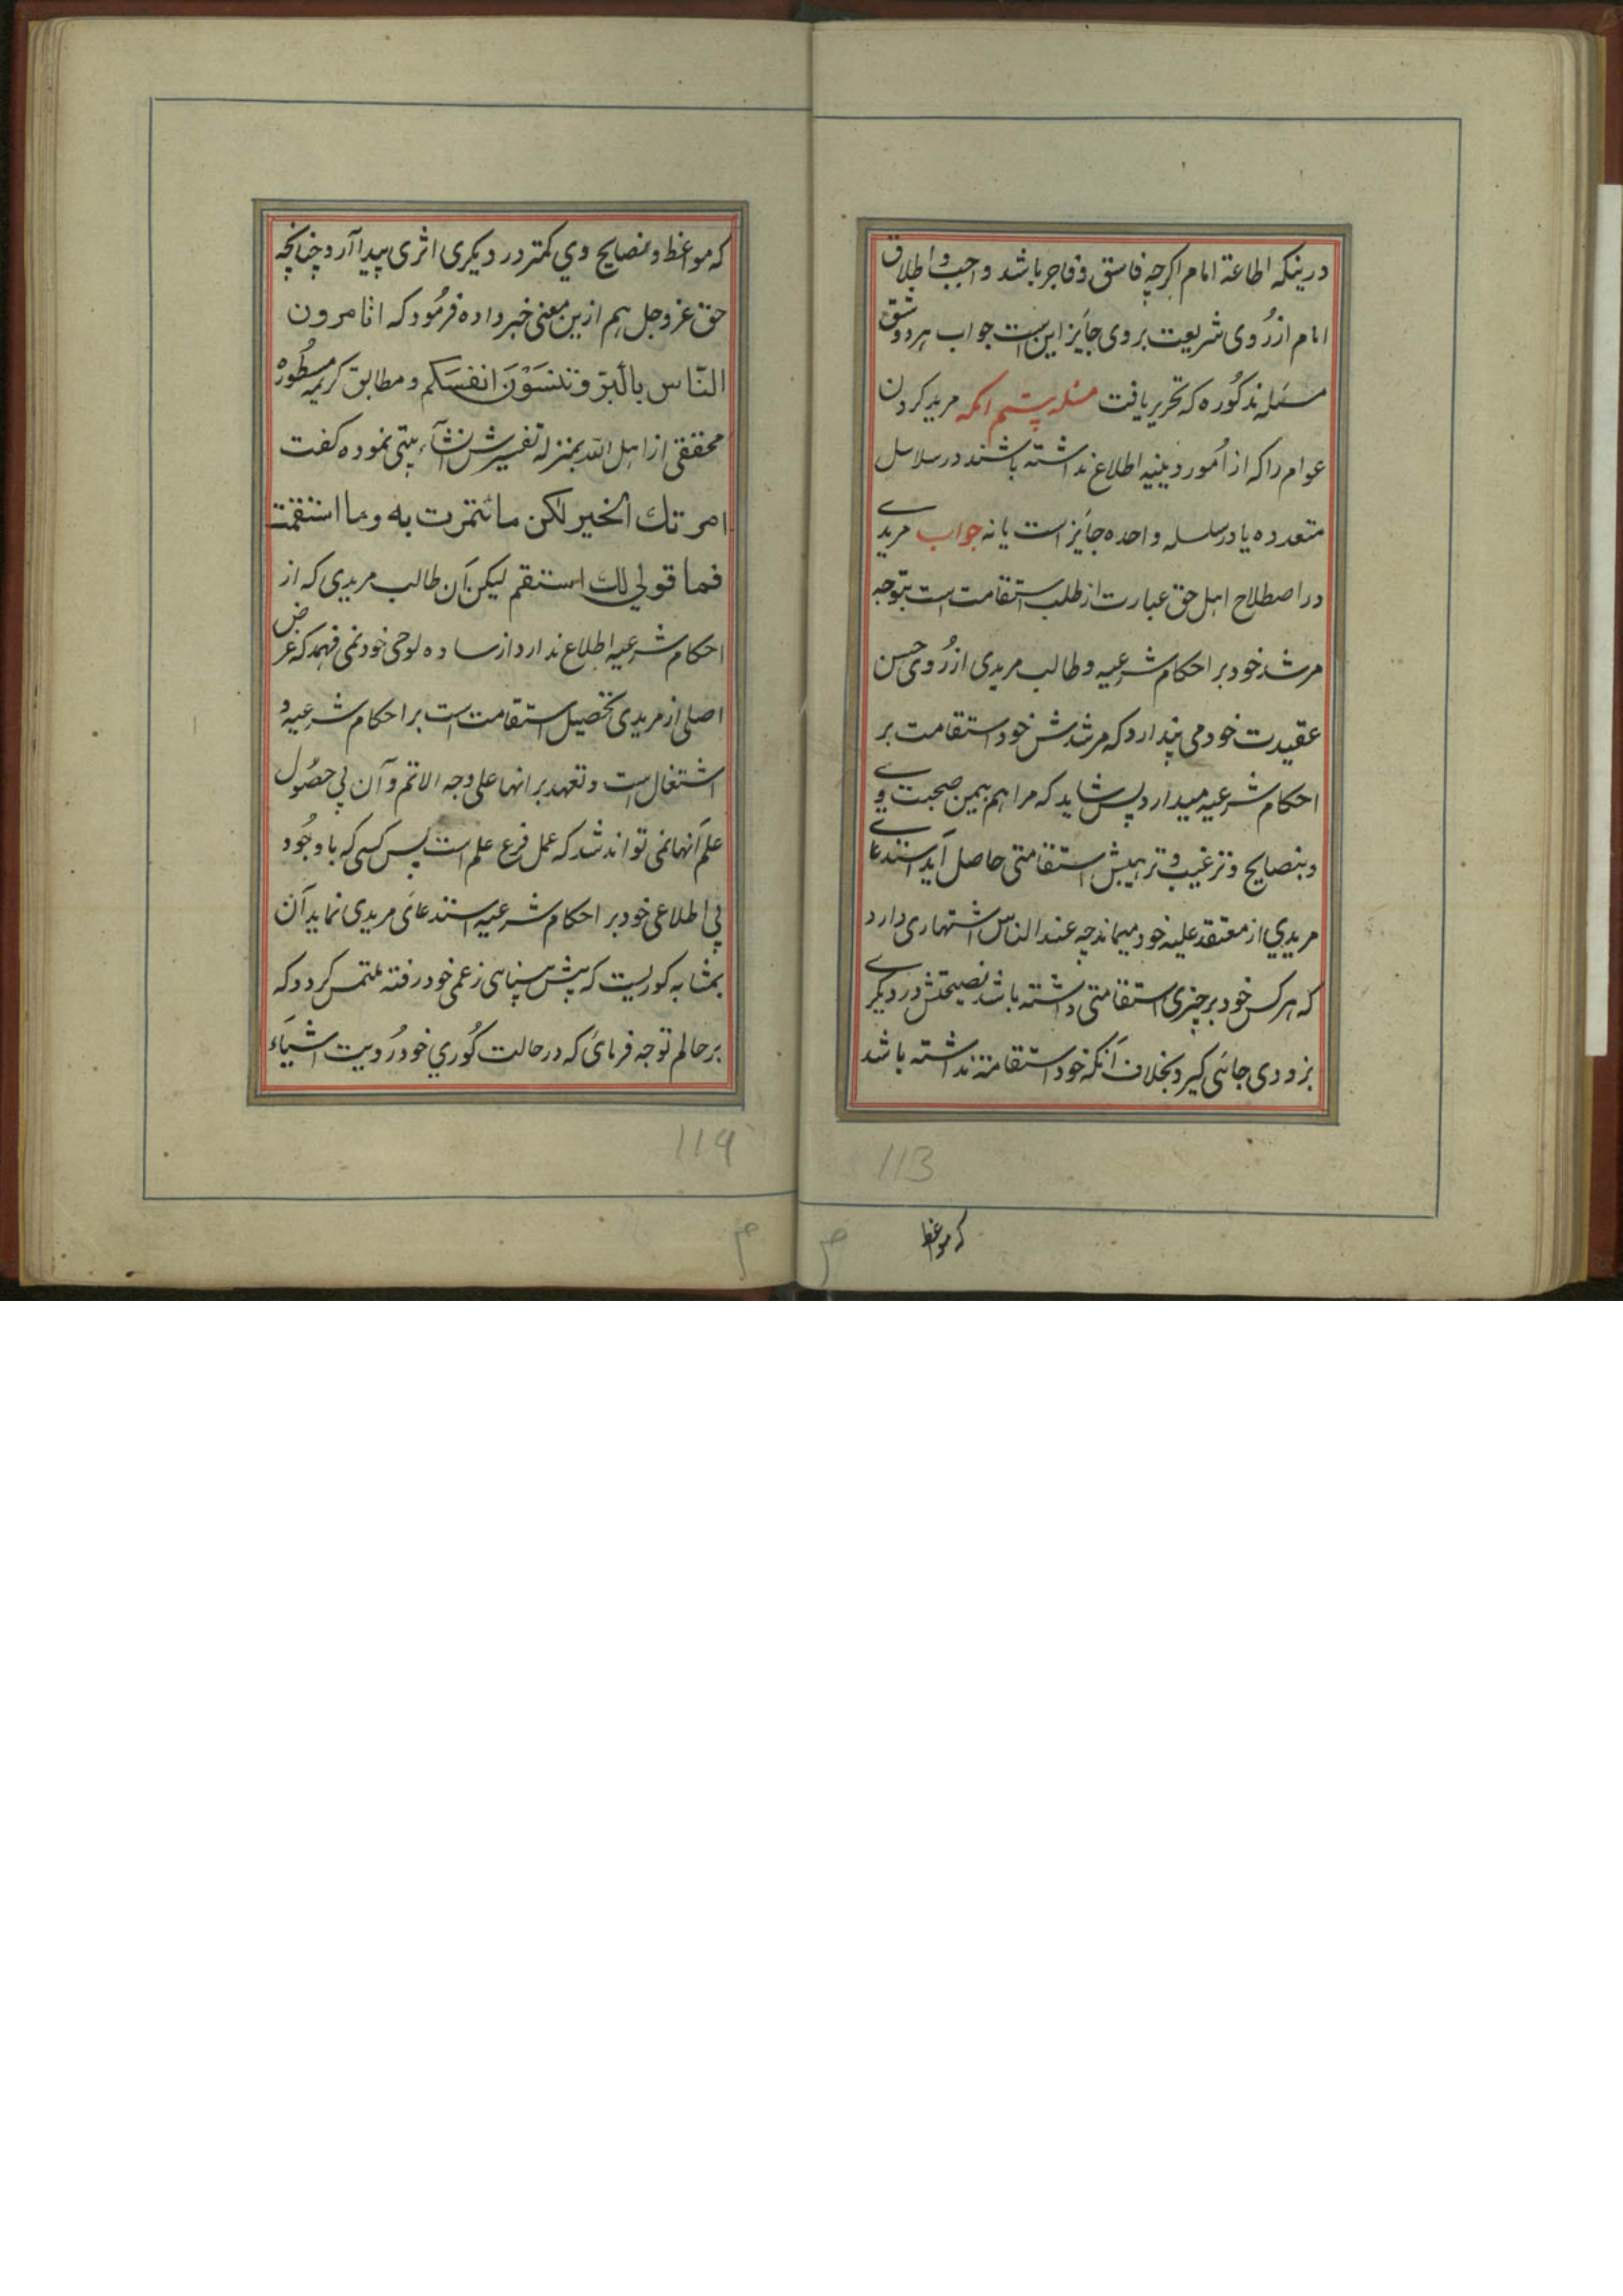 درینکه اطاعة امام اکرچه فاسق و فاجر باشد واجب و اطلاق
امام از رُوی شریعت بر وی جایز این است جواب هر دو شق
مسئله مذکُوره که تحریر یافت مسئله بیستم انکه مرید کردن
عوام را که از امُور دینیه اطلاع نداشته باشند در سلاسل
متعدده یا در سلسله واحده جایز است یا نه جواب مریدی
در اصطلاح اهل حق عبارت از طلب استقامت است بتوجه
مرشد خود بر احکام شرعیه و طالب مریدی از رُوی حسن
عقیدت خود می پندارد که مرشدش خود استقامت بر
احکام شرعیه میدارد پس شاید که مرا هم بیمن صحبت وی
و بنصایح و ترغیب و ترهیبش استقامتی حاصل آید استدعای
مریدي از معتقد علیه خود مینماید چه عند الناس اشتهاری دارد
که هر کس خود بر چیزی استقامتی داشته باشد نصیحتش در دیکری
بزودی جائی کیرد بخلاف آنکه خود استقامته نداشته باشد
113
که مواعظ
که مواعظ و نصایح وي کمتر در دیکری اثری پیدا آرد چنانچه
حق عز و جل هم ازین معنی خبر داده فرمُود که اتامرون
النّاس بالبّر و تنسَوْنَ انفسَکم و مطابق کریمه مسطُوره
محققی از اهل الله بمنزله تفسیرش انشآء بیتی نموده کفت
امرتك الخیر لکن مائتمرت به وما استقمت
فما قولي لك استقم لیکن آن طالب مریدی که از
احکام شرعیه اطلاع ندارد از ساده لوحی خود نمی فهمد که غرض
اصلی از مریدی تحصیل استقامت است بر احکام شرعیه و
اشتغال است و تعهد بر انها علی وجه الاتم و آن بی حصُول
علم آنها نمی تواند شد که عمل فرع علم است پس کسی که باوجُود
بی اطلاعی خود بر احکام شرعیه استدعای مریدی نماید آن
بمثابه کوریست که پیش بینای زعمی خود رفته ملتمس کردد که
بر حالم توجه فرمائ که در حالت کُوري خود رُویت اشیآء
119